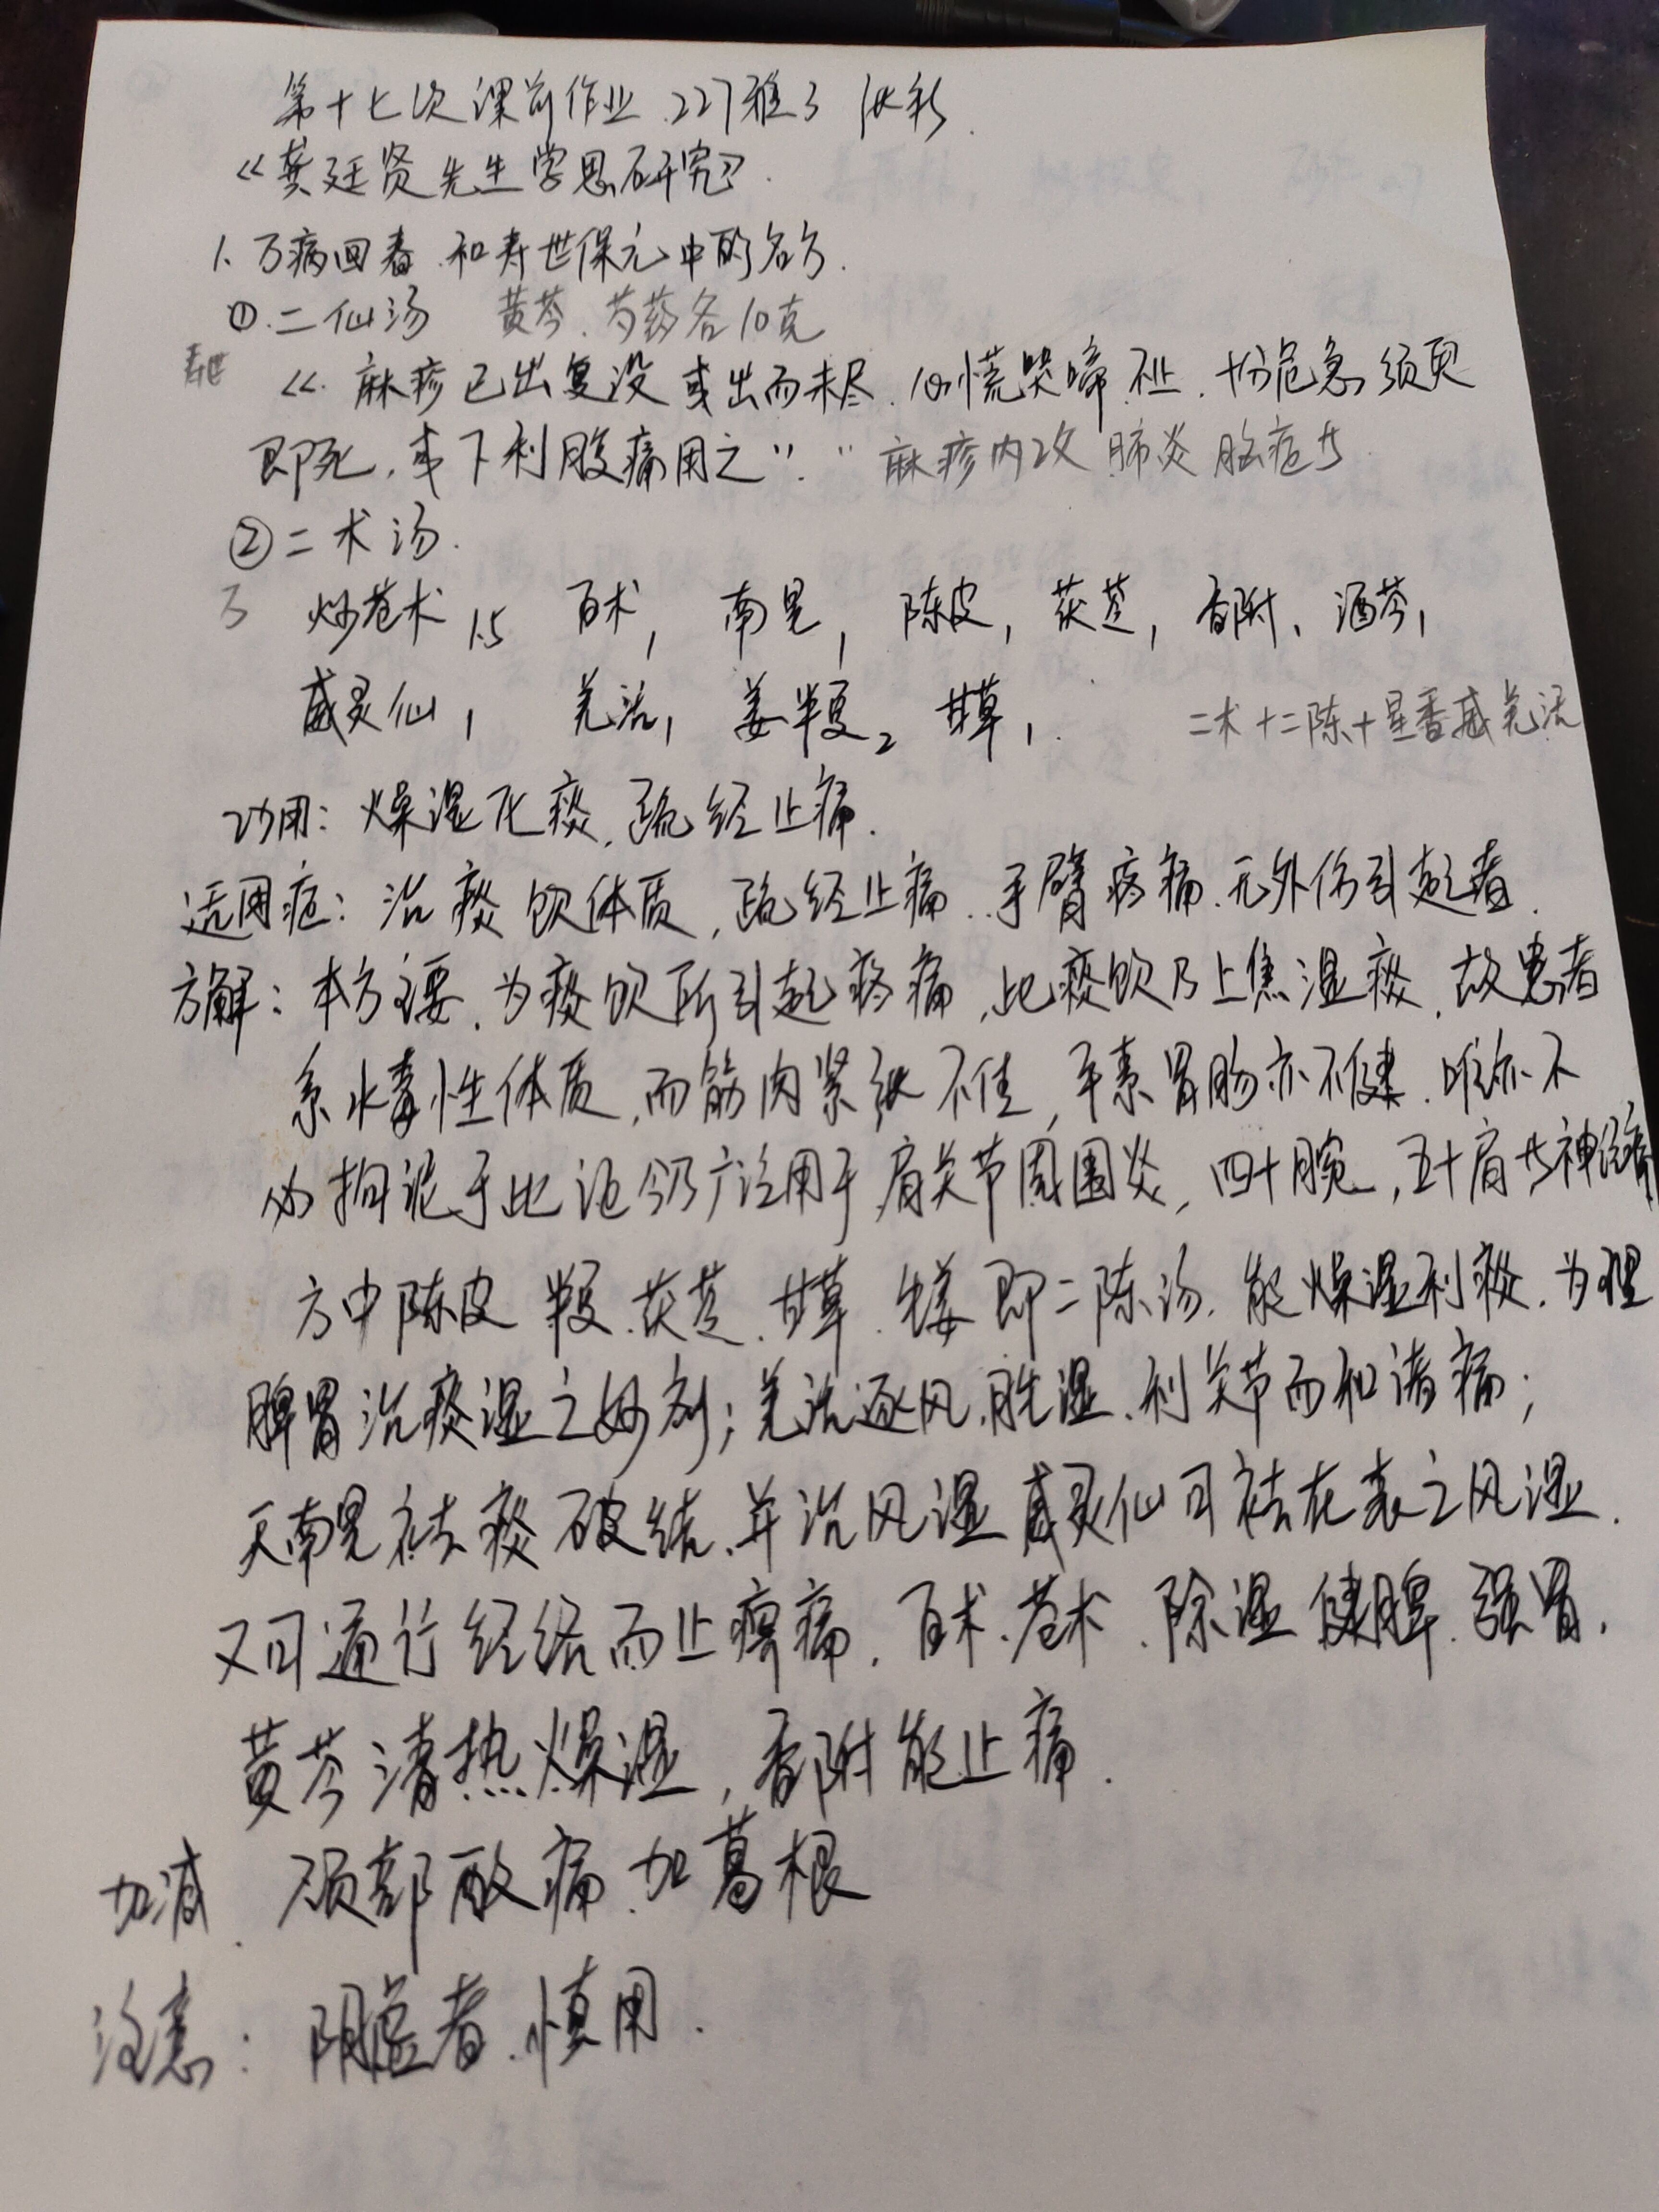 第十七次课前作业 227雅3
《龚廷贤先生学思研究》
1、万病回春 和寿世保元中的名方.
①.二仙汤 黄芩、芍药各10克
寿世 《. 麻疹已出复没或出而未尽. 心慌哭啼不止. 十分危急须臾
即死. 或下利腹痛用之". "麻疹内攻 肺炎 脑症\
②二术汤.
3 炒苍术1.5 白术1 南星1 陈皮1 茯苓1 香附1 酒芩1
威灵仙1 羌活1 姜半夏2 甘草1. 二术+二陈+星香威羌活
功用: 燥湿化痰, 疏经止痛.
适用症: 治痰饮体质, 疏经止痛. 手臂疼痛. 无外伤引起者.
方解: 本方主要. 为痰饮所引起疼痛, 此痰饮乃上焦湿痰. 故患者
系水毒性体质, 而筋肉紧纵不佳, 平素胃肠亦不健. 唯亦不
必拘泥于此泥今乃广泛用于肩关节周围炎, 四十腕, 五十肩 神经痛
方中陈皮 半夏.茯苓.甘草.生姜即二陈汤. 能燥湿利痰. 为理
脾胃治痰湿之妙剂; 羌活逐风.胜湿.利关节而和诸痛;
天南星祛痰破结.并治风湿 威灵仙可祛在表之风湿.
又可通行经络而止痹痛. 白术.苍术.除湿健脾.强胃.
黄芩清热燥湿, 香附能止痛.
加减. 项部酸痛.加葛根
注意: 阴虚者.慎用.